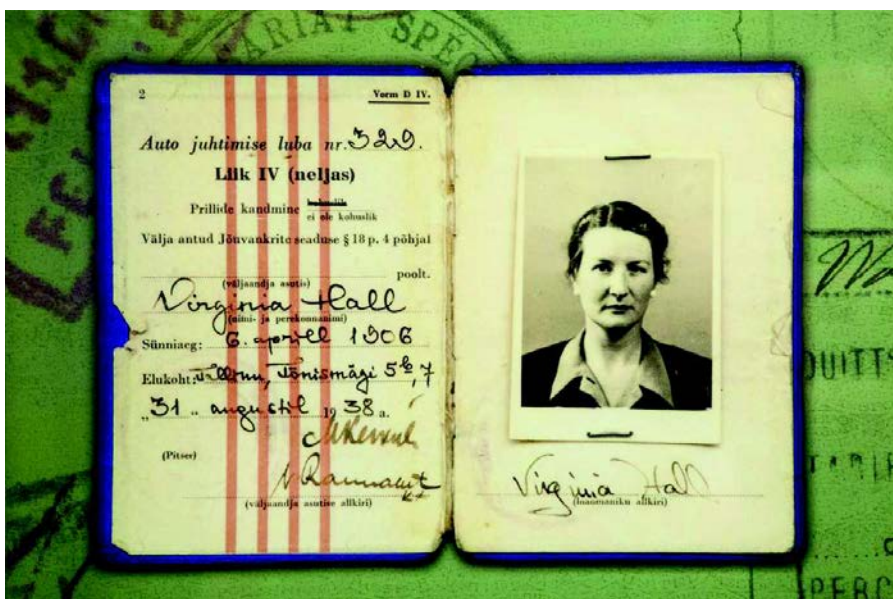 ARIAT SPEC
2
Vorm D IV.
Auto juhtimise luba nr. 329.
Liik IV (neljas)
Prillide kandmine kohuslik
ei ole kohuslik
Välja antud Jõuvankrite seaduse § 18 p. 4 põhjal
poolt.
(väljaandja asutis)
Virginia Hall
(nimi- ja perekonnanimi)
Sünniaeg: 6. aprill 1906
Elukoht: Tallinn, Tõnismägi 5b, 7
"31" augustil 1938 a.
(Pitser)
(väljaandja asutise allkiri)
Virginia Hall
(loaomaniku allkiri)